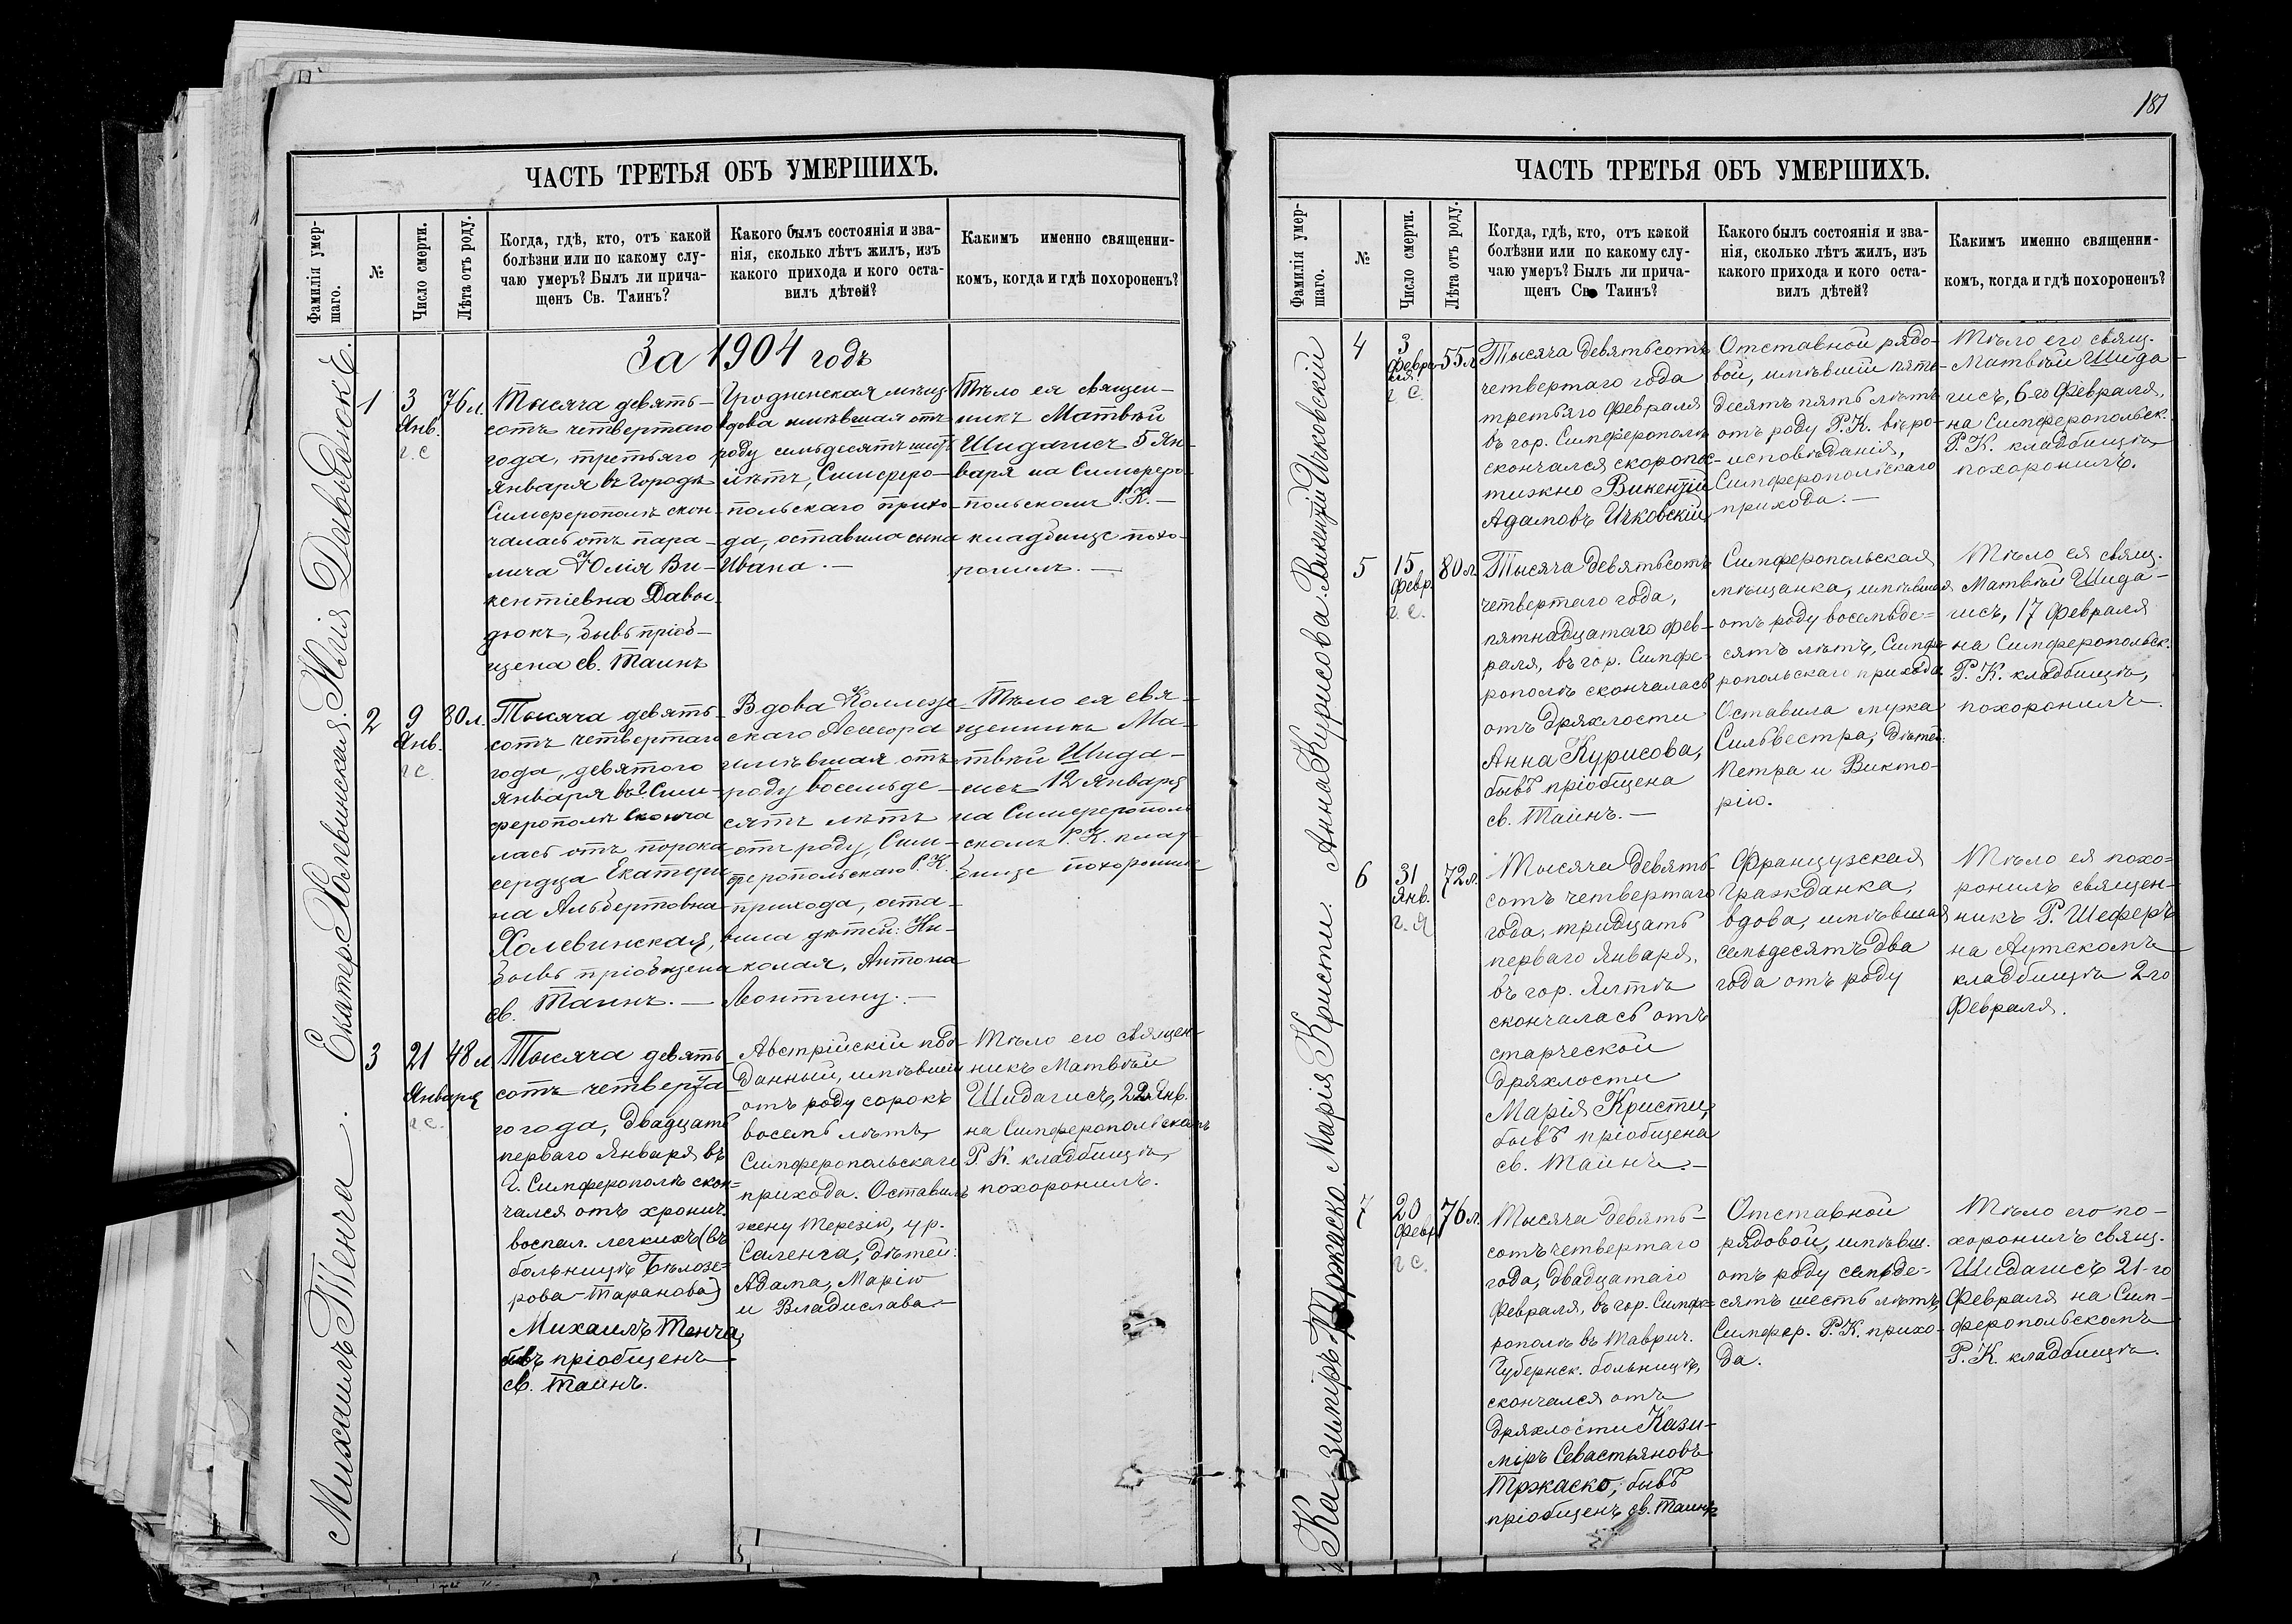 181
ЧАСТЬ ТРЕТЬЯ ОБЪ УМЕРШИХЪ.
Фамилія умер-
шаго.
№
Число смерти.
Лѣта отъ роду.
Когда, гдѣ, кто, отъ какой
болѣзни или по какому слу-
чаю умеръ? Былъ ли прича-
щенъ Св. Таинъ?
Какого былъ состоянія и зва-
нія, сколько лѣтъ жилъ, изъ
какого прихода и кого оста-
вилъ дѣтей?
Какимъ именно священни-
комъ, когда и гдѣ похороненъ?
За 1904 годъ
Юлія Давыдюкъ.
1
3
Янв.
г. с
76 л.
Тысяча девять-
сотъ четвертаго
года, третьяго
Января въ городѣ
Симферополѣ скон-
чалась отъ пара-
лича Юлія Ви-
кентіевна Давы-
дюкъ, бывъ пріоб-
щена св. Таинъ
Гродненская мѣщ.
вдова имѣвшая отъ
роду семьдесятъ шесть
лѣтъ, Симферо-
польскаго прихо-
да, оставила сына
Ивана. —
Тѣло ея священ-
никъ Матвѣй
Шидагисъ 5 Ян-
варя на Симферо-
польскомъ Р. К. —
кладбище похо-
ронилъ. —
Екатер. Холевинская.
2
9
Янв.
г с.
80 л.
Тысяча девять-
сотъ четвертаго
года, девятого
Января въ г. Сим-
ферополѣ сконча
лась отъ порока
сердца Екатери
на Альбертовна
Холевинская,
бывъ пріобщена
св. Таинъ. —
Вдова Коллеже
скаго Асессора
имѣвшая отъ
роду восемьде-
сятъ лѣтъ
отъ роду, Сим-
феропольскаго Р. К.
прихода, оста-
вила дѣтей: Ни-
колая, Антона
Леонтину. —
Тѣло ея свя-
щенникъ Ма-
твѣй Шида-
гисъ 12 Января
на Симферополь
скомъ Р. К. клад-
бище похоронилъ
Михаилъ Тенча.
3
21
Января
г с.
48 л
Тысяча девять-
сотъ четверта-
го года, двадцать
перваго Января въ
г. Симферополѣ скон-
чался отъ хронич.
воспал. легкихъ (въ
больницѣ Бѣлозе-
рова-Таранова)
Михаилъ Тенча,
бывъ пріобщенъ
св. Таинъ.
Австрійскій под-
данный, имѣвшій
отъ роду сорокъ
восемь лѣтъ,
Симферопольскаго
прихода. Оставилъ
жену Терезію, ур.
Саленга, дѣтей:
Адама, Марію
и Владислава. —
Тѣло его священ-
никъ Матвѣй
Шидагисъ, 22 Янв.
на Симферопольскомъ
Р. К. кладбищѣ,
похоронилъ.
ЧАСТЬ ТРЕТЬЯ ОБЪ УМЕРШИХЪ.
Фамилія умер-
шаго.
№
Число смерти.
Лѣта отъ роду.
Когда, гдѣ, кто, отъ какой
болѣзни или по какому слу-
чаю умеръ? Былъ ли прича-
щенъ Св. Таинъ?
Какого былъ состоянія и зва-
нія, сколько лѣтъ жилъ, изъ
какого прихода и кого оста-
вилъ дѣтей?
Какимъ именно священни-
комъ, когда и гдѣ похороненъ?
Викентій Ичковскій
4
3
Февра-
ля.
г с.
55 л
Тысяча девятьсотъ
четвертаго года
третьяго Февраля
въ гор. Симферополѣ
скончался скоропос-
тижно Викентій
Адамовъ Ичковскій,
Отставной рядо-
вой, имѣвшій пять-
десятъ пять лѣтъ
отъ роду Р. К. вѣро-
исповѣданія,
Симферопольскаго
прихода. —
Тѣло его свящ.
Матвѣй Шида-
гисъ, 6-го Февраля,
на Симферопольск.
Р. К. кладбищѣ,
похоронилъ.
Анна Курисова.
5
15
Февр.
г. с.
80 л.
Тысяча девятьсотъ
четвертаго года,
пятнадцатаго Фев-
раля, въ гор. Симфе-
рополѣ скончалась
отъ дряхлости
Анна Курисова,
бывъ пріобщена
св. Таинъ. —
Симферопольская
мѣщанка, имѣвшая
отъ роду восемьде-
сятъ лѣтъ, Симфе-
ропольскаго прихода.
Оставила мужа
Сильвестра, дѣтей:
Петра и Викто-
рію.
Тѣло ея свящ.
Матвѣй Шида-
гисъ, 17 Февраля
на Симферопольск.
Р. К. кладбищѣ,
похоронилъ.
Марія Кристи.
6
31
Янв.
г. Я
72 л.
Тысяча девять-
сотъ четвертаго
года, тридцать
перваго Января,
въ гор. Ялтѣ
скончалась отъ
старческой
дряхлости
Марія Кристи,
бывъ пріобщена
св. Таинъ. —
Французская
Гражданка,
вдова, имѣвшая
семьдесятъ два
года отъ роду
Тѣло ея похо-
ронилъ священ-
никъ Р. Шеферъ
на Аутскомъ
кладбищѣ 2-го
Февраля.
Казимиръ Тржаско
7
20
Февр.
г с.
76 л.
Тысяча девять-
сотъ четвертаго
года, двадцатаго
Февраля, въ гор. Симфе-
рополѣ въ Таврич.
Губернск. больницѣ,
скончался отъ
дряхлости Кази-
міръ Севастьяновъ
Тржаско, бывъ
пріобщенъ св. Таинъ
Отставной
рядовой, имѣвш.
отъ роду семьде-
сятъ шесть лѣтъ,
Симфер. Р. К. прихо-
да.
Тѣло его по-
хоронилъ свящ.
Шидагисъ 21-го
Февраля на Сим-
феропольскомъ
Р. К. кладбищѣ.